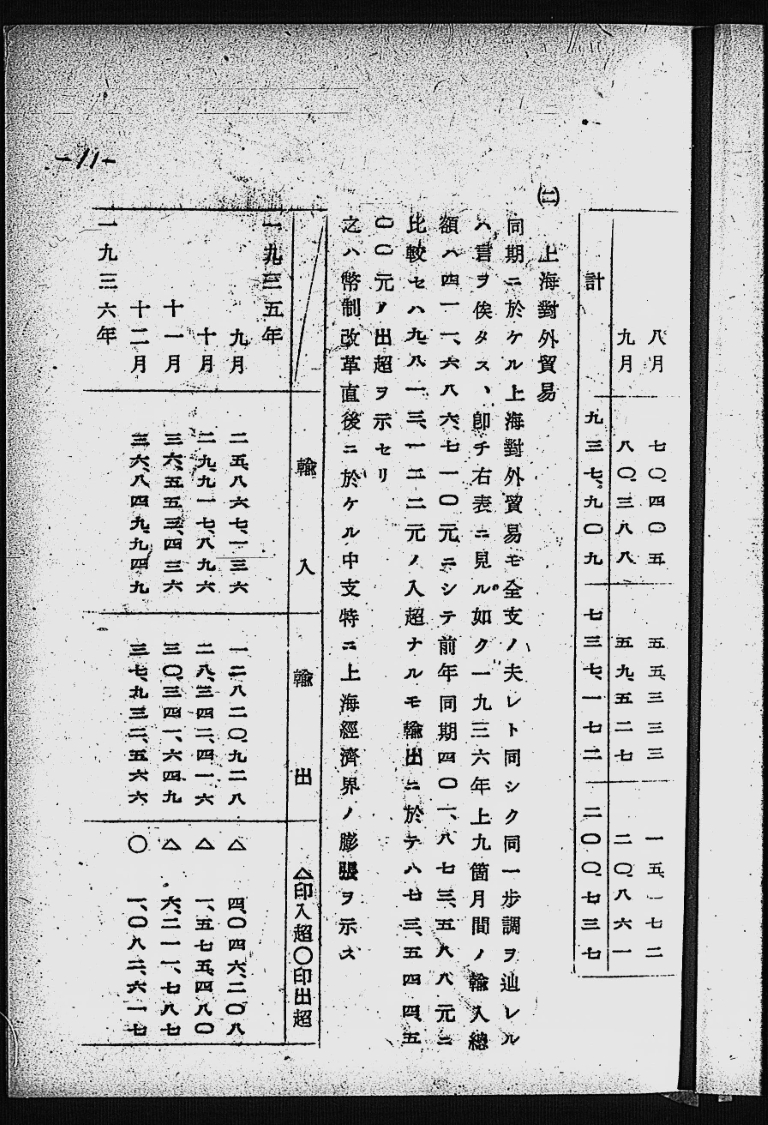 -11-
八月 七〇、四〇五 五五、三三三 一五、一七二
九月 八〇、三八八 五九、五二七 二〇、八六一
計 九三七、九〇九 七三七、一七二 二〇〇、七三七
㈡ 上海對外貿易
同期ニ於ケル上海對外貿易モ全支ノ夫レト同シク同一步調ヲ辿レル
ハ言ヲ俟タス、卽チ右表ニ見ル如ク一九三六年上九箇月間ノ輸入總
額ハ四一一、六八六、七一〇元ニシテ前年同期四〇一、八七三、五八八元ニ
比較セハ九八一三、一二二元ノ入超ナルモ輸出ニ於テハ七三、五四四五
〇〇元ノ出超ヲ示セリ
之ハ幣制改革直後ニ於ケル中支特ニ上海經濟界ノ膨張ヲ示ス
輸入 輸出 △印入超〇印出超
一九三五年
九月 二五、八六七、一三六 一二八二〇九二八 △ 四、〇四六、二〇八
十月 二九、九一七、八九六 二八、三四二、四一六 △ 一、五七五、四八〇
十一月 三六、五五三、四三六 三〇、三四一、六四九 △ 六、二一一、七八七
十二月 三六、八四九、九四九 三七、九三二、五六六 〇 一、〇八二、六一七
一九三六年